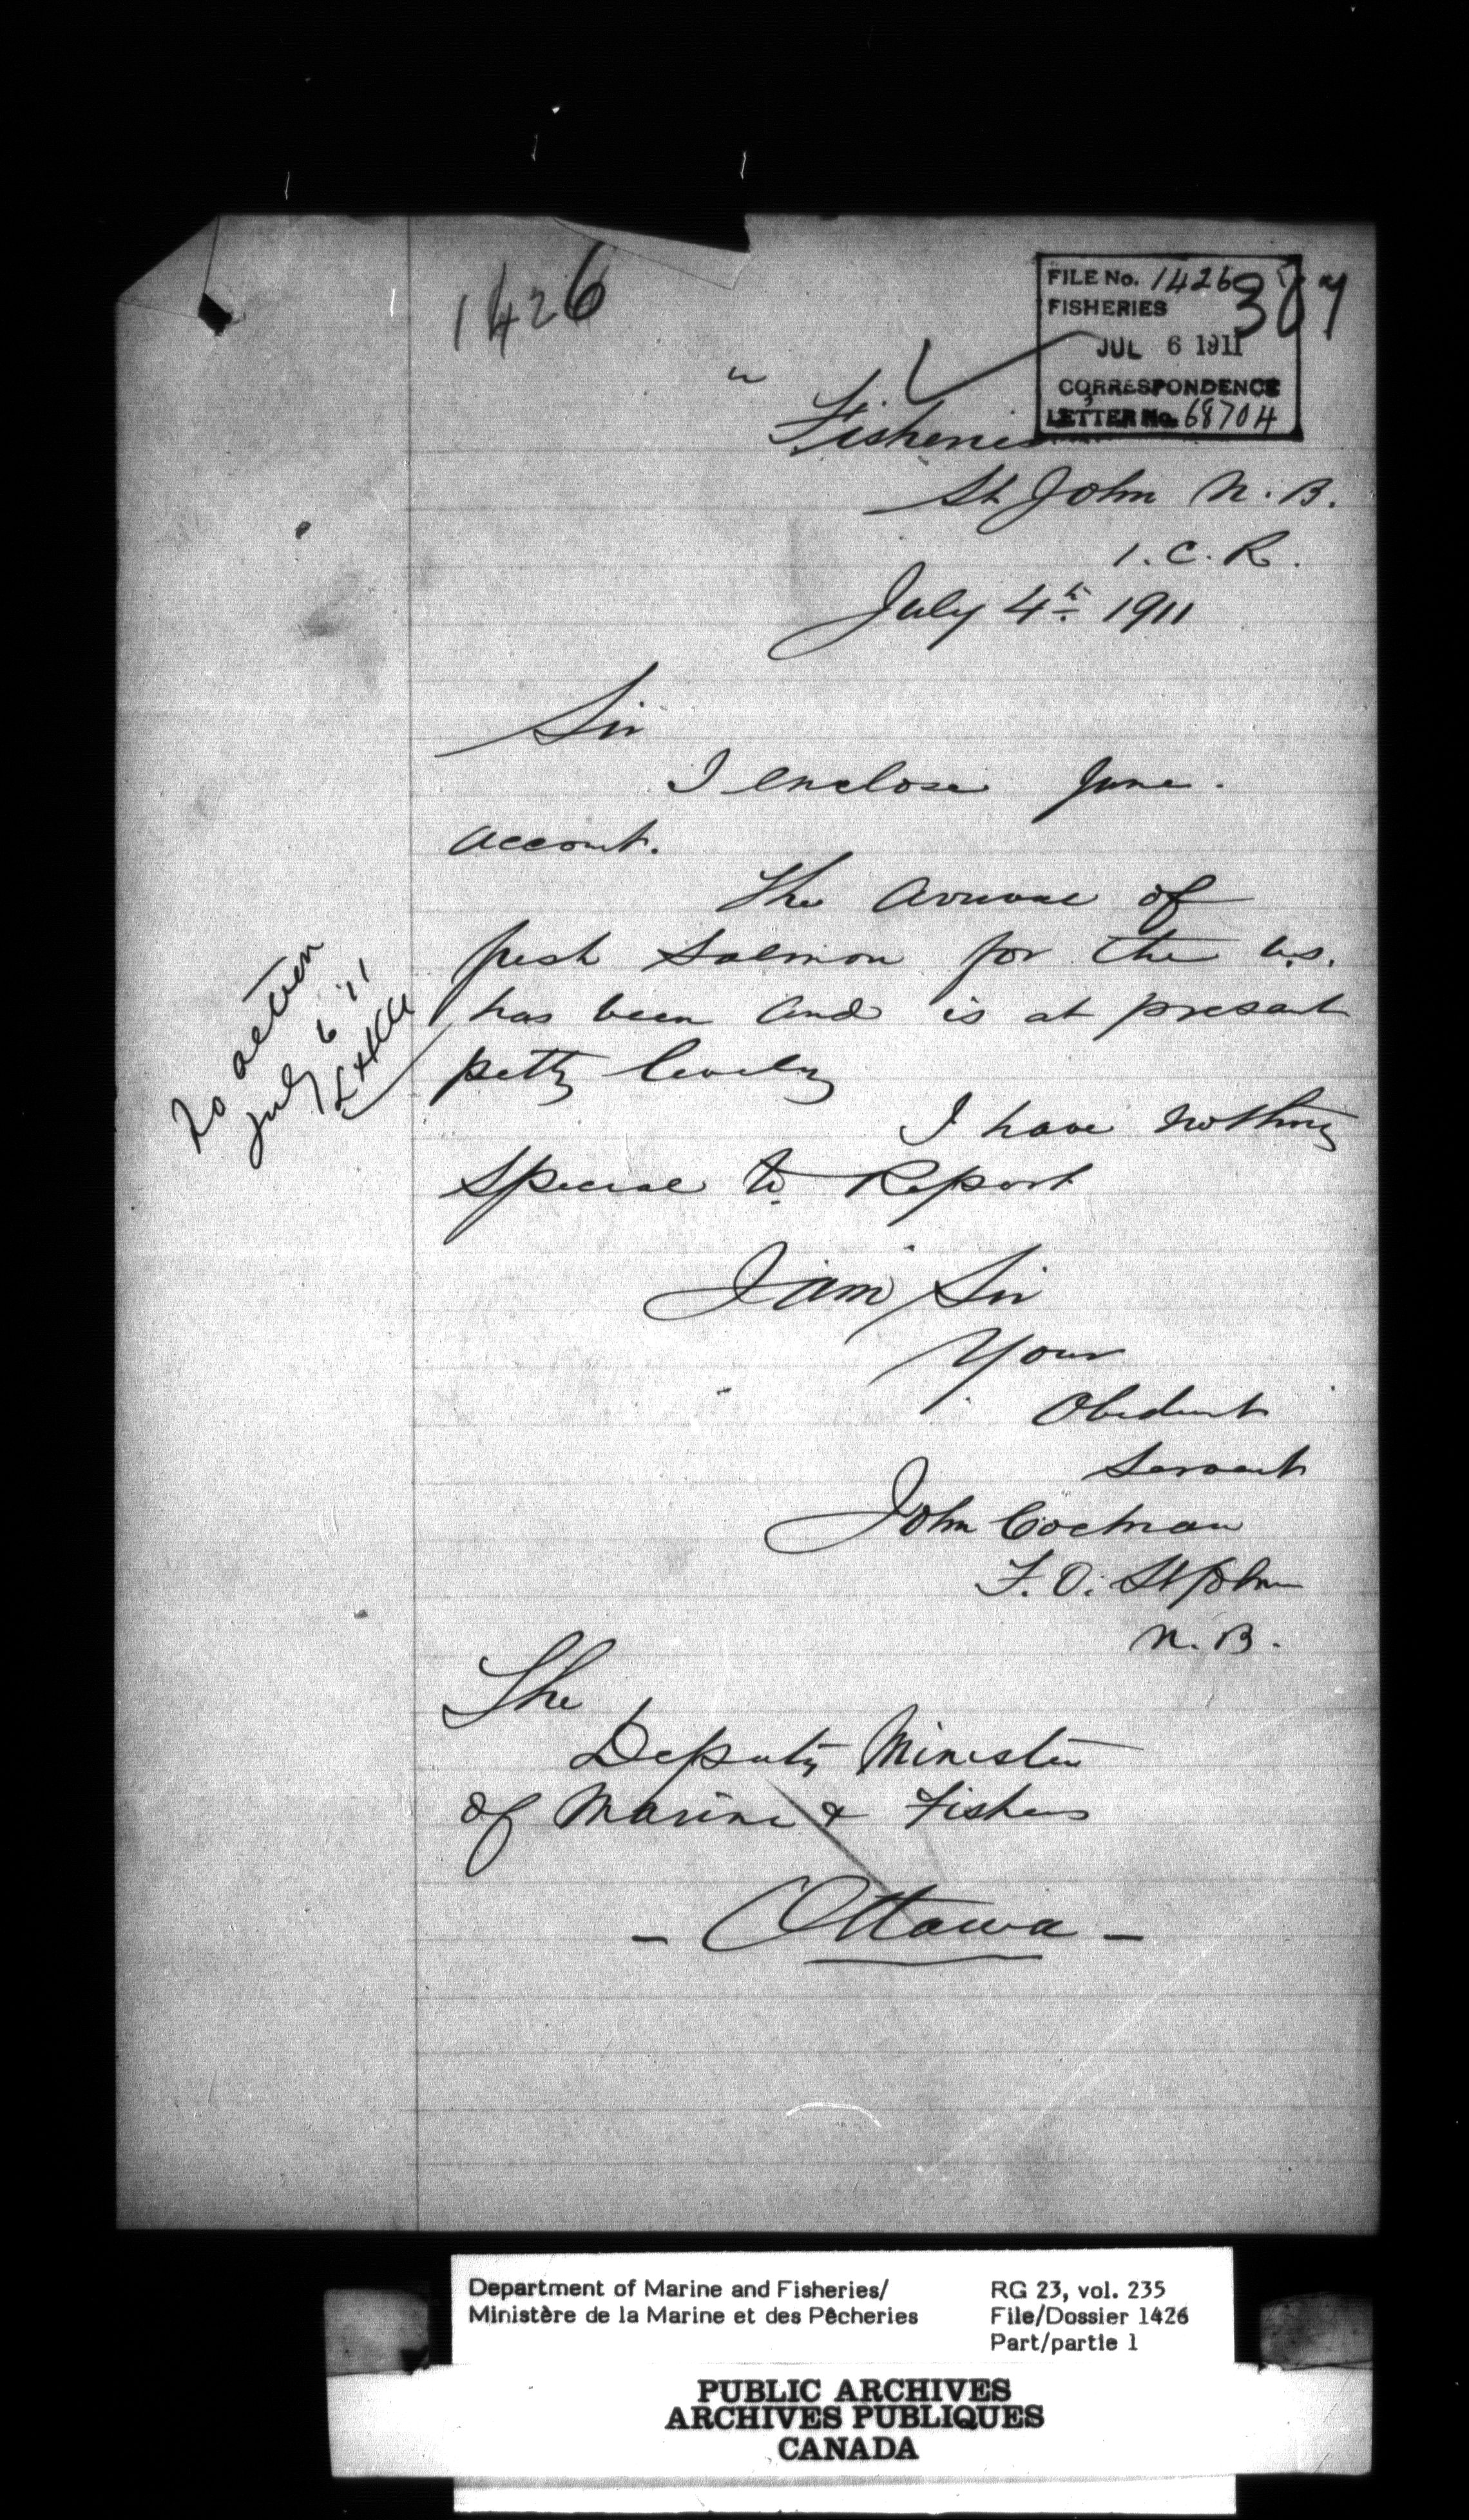 1426
FILE No. 1426
387
FISHERIES
JUL 6 1911
CORRESPONDENCE
LETTER No. 68704
" Fisheries
St John N. B.
I. C. R.
July 4th 1911
Sir
I enclose June
account.
The arrival of
fresh salmon for the U.S.
has been and is at present
petty lively
I have nothing
special to Report
No action
July 6 '11
I am Sir
Your
Obedient
Servant
John Cochran
F. O. St John
N. B.
The
Deputy Minister
of Marine & Fisheries
- Ottawa -
Department of Marine and Fisheries/
Ministère de la Marine et des Pêcheries
RG 23, vol. 235
File/Dossier 1426
Part/partie 1
PUBLIC ARCHIVES
ARCHIVES PUBLIQUES
CANADA